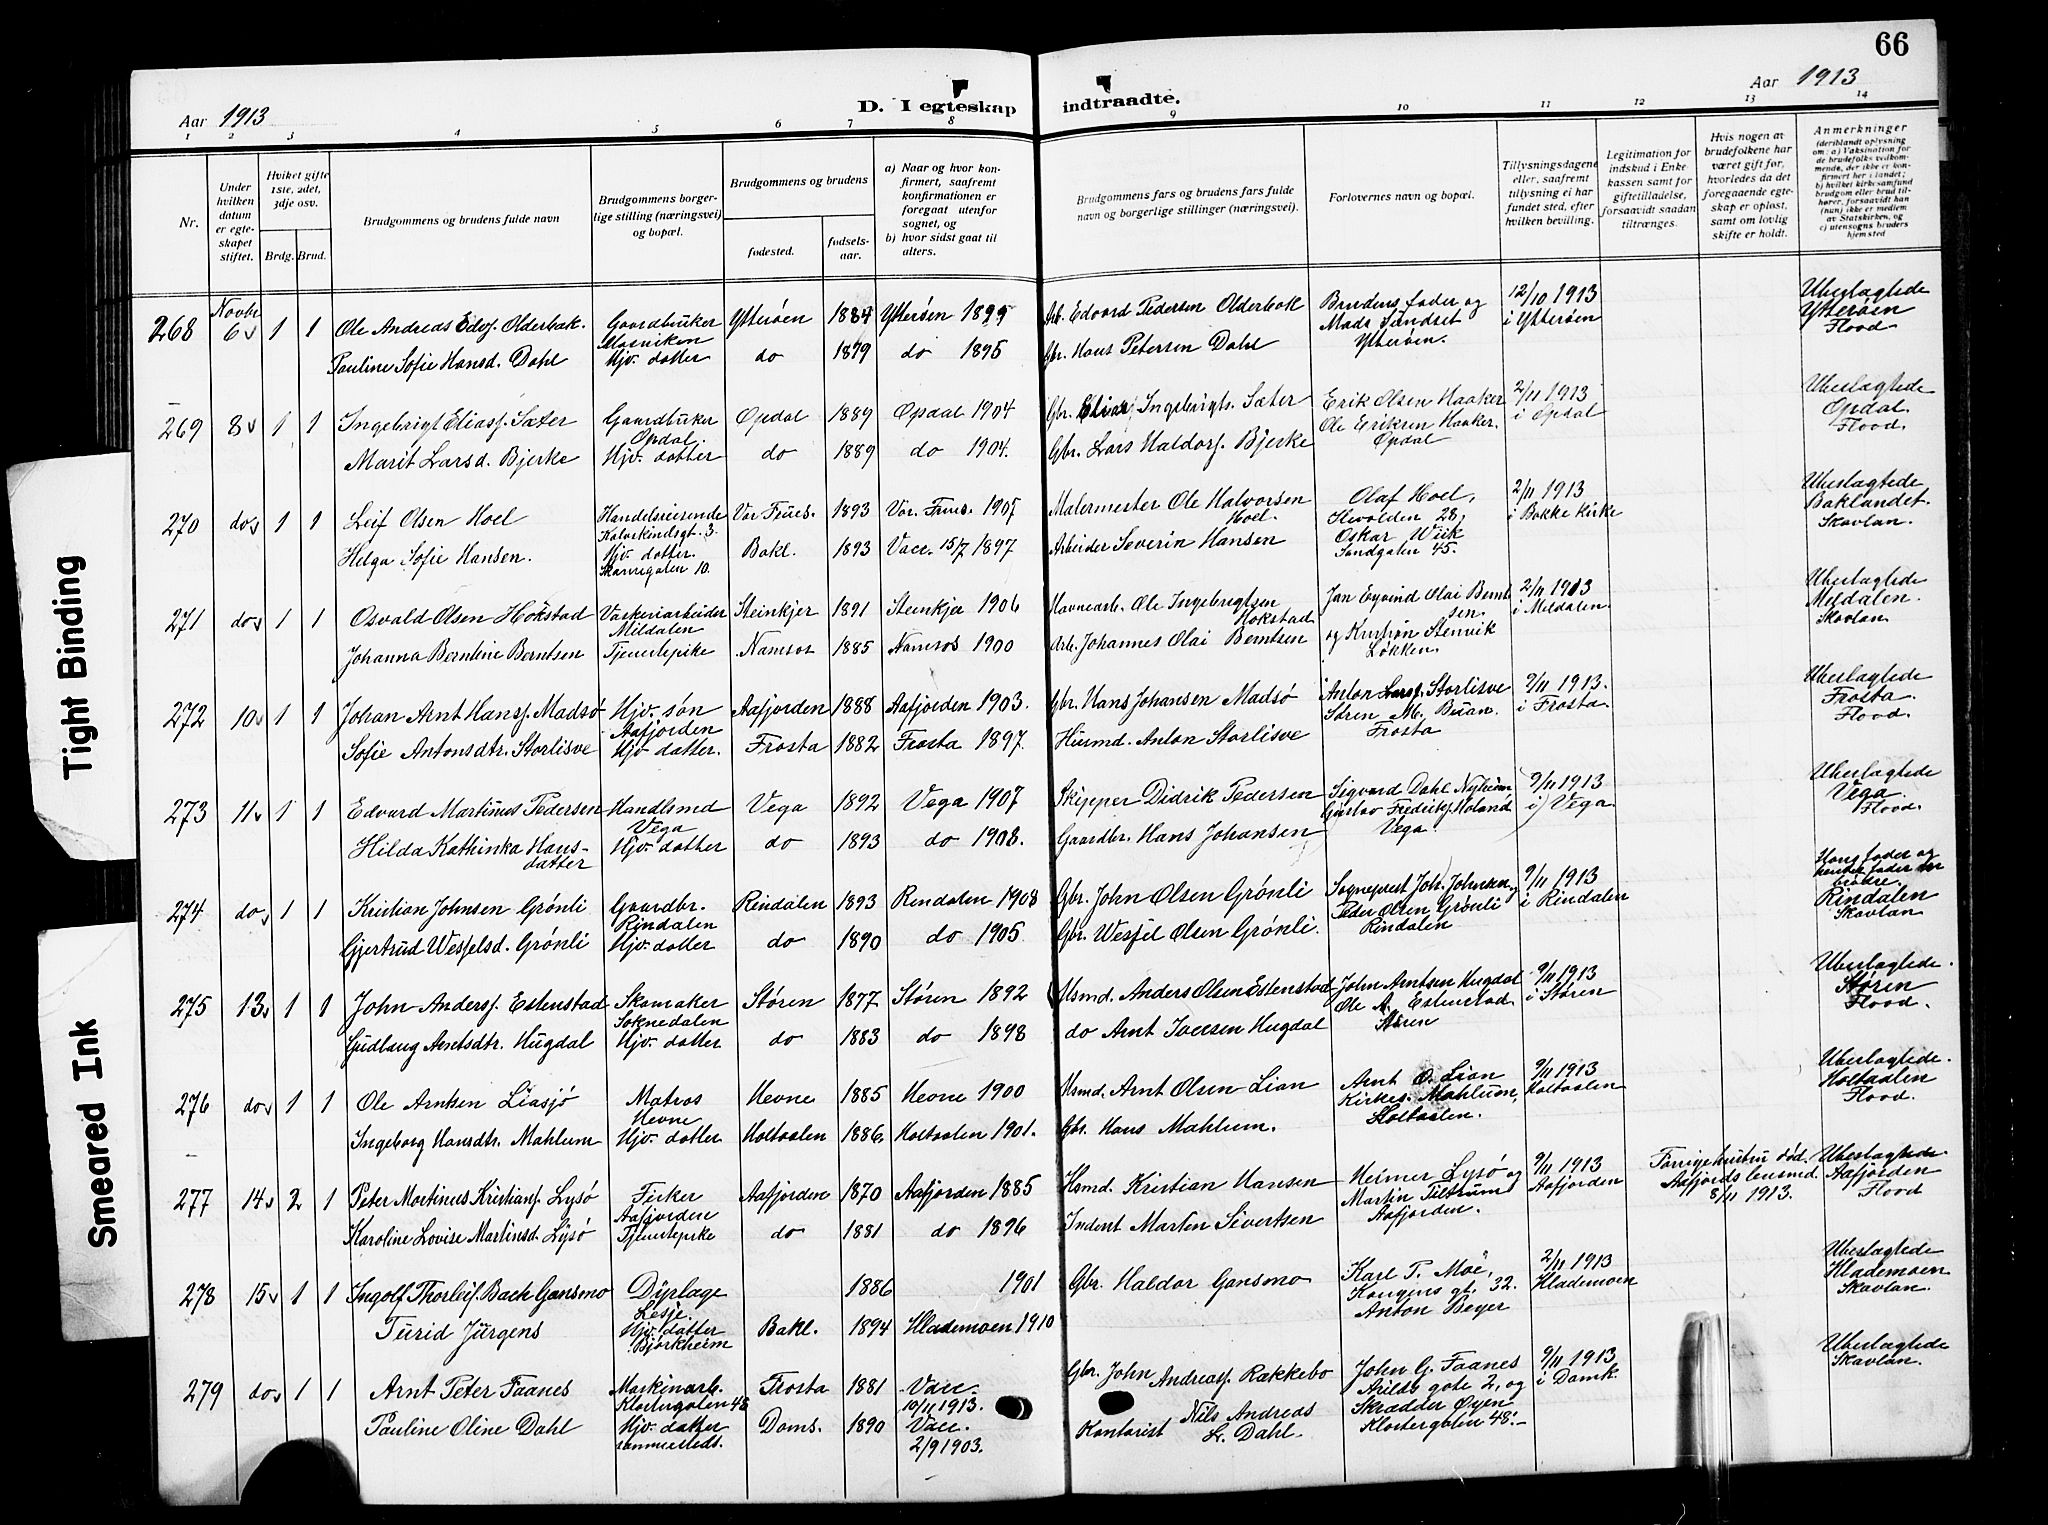 66
Aar 1913
D. I egteskap indtraadte.
Aar 1913
1 2 3 4 5 6 7 8 9 10 11 12 13 14
Nr.
Under hvilken datum er egteskapet stiftet.
Hvilket gifte 1ste, 2det, 3dje osv.
Brdg. Brud.
Brudgommens og brudens fulde navn
Brudgommens borgerlige stilling (næringsvei) og bopæl.
Brudgommens og brudens
fødested.
fødselsaar.
a) Naar og hvor konfirmert, saafremt konfirmationen er foregaat utenfor sognet, og
b) hvor sidst gaat til alters.
Brudgommens fars og brudens fars fulde navn og borgerlige stillinger (næringsvei).
Forlovernes navn og bopæl.
Tillysningsdagene eller, saafremt tillysning ei har fundet sted, efter hvilken bevilling.
Legitimation for indskud i Enkekassen samt for giftetilladelse, forsaavidt saadan tiltrænges.
Hvis nogen av brudefolkene har været gift før, hvorledes da det foregaaende egteskap er opløst, samt om lovlig skifte er holdt.
Anmerkninger (deriblandt oplysning om: a) Vaksination for de brudefolks vedkommende, der ikke er konfirmert her i landet; b) hvilket kirkesamfund brudgom eller brud tilhører, forsaavidt han (hun) ikke er medlem av Statskirken, og c) utensogns bruders hjemsted
268 Novbr 6 1 1 Ole Andreas Edvs. Olderbak. Gaardbruker Mosviken Ytterøen 1884 Ytterøen 1899 Arb. Edvard Pedersen Olderbak Brudens fader og Mads Sundset Ytterøen. 12/10 1913 i Ytterøen Ubeslægtede Ytterøen Flood
Pauline Sofie Hansd. Dahl Hjv. datter do 1879 do 1895 Gbr. Hans Petersen Dahl
269 8 1 1 Ingebrigt Eliass. Sæter Gaardbruker Opdal Opdal 1889 Opdal 1904 Gbr. Elias Ingebrigts. Sæter Erik Olsen Haaker Ole Eriksen Haaker. Opdal 2/11 1913 i Opdal Ubeslægtede Opdal. Flood.
Marit Larsd. Bjerke Hjv. datter do 1889 do 1904. Gbr. Lars Haldors. Bjerke
270 do 1 1 Leif Olsen Hoel Handelsreisende Kalvskindsgt. 3. Vor Frues. 1893 Vor. Frues. 1907 Malermester Ole Halvorsen Hoel. Olaf Hoel, Ilevolden 28, Oskar Wiik Sandgaten 45. 2/11 1913 i Bakke Kirke Ubeslægtede Baklandet. Skavlan.
Helga Sofie Hansen. Hjv. datter. 10. Bakl. 1893 Vacc. 15/7 1897 Arbeider Severin Hansen
271 do 1 1 Osvald Olsen Hokstad Væskeriarbeider Mildalen Steinkjer 1891 Steinkjer 1906 Havnearb. Ole Ingebrigtsen Hokstad Jan Eyvind Olai Berntsen. og Kristian Stenvik Løkken. 2/11 1913 i Meldalen. Ubeslægtede Meldalen. Skavlan.
Johanna Berntine Berntsen Tjenestepike Namsos 1885 Namsos 1900 Arb. Johannes Olai Berntsen
272 10 1 1 Johan Arnt Hans. Madsø Hjv. søn Aafjorden Aafjorden 1888 Aafjorden 1903. Gbr. Hans Johansen Madsø Anton Lars. Storlisve Søren M. Buan. Frosta 9/11 1913. i Frosta. Ubeslægtede Frosta. Flood.
Sofie Antonsdtr. Storlisve Hjv. datter. Frosta 1882 Frosta 1897. Husmd. Anton Storlisve
273 11 1 1 Edvard Martinus Pedersen Handlsmd Vega Vega 1892 Vega 1907 Skipper Didrik Pedersen Sigvard Dahl Gustav Fredriks. Holand Vega 9/11 1913 i Vega Ubeslægtede Vega. Flood.
Hilda Kathinka Hansdatter Hjv. datter do 1893 do 1908. Gaardbr. Hans Johansen
274 do 1 1 Kristian Johnsen Grønli Gaardbr. Rindalen Rindalen 1893 Rindalen 1908 Gbr. John Olsen Grønli Sogneprest Joh. Johnsen og Peder Olsen Grønli Rindalen 9/11 1913 i Rindalen Hans fader og hendes fader er brødre. Rindalen Skavlan
Gjertrud Wesselsd. Grønli Hjv. datter do 1890 do 1905. Gbr. Wessel Olsen Grønli.
275 13 1 1 John Anders. Estenstad Skomaker Soknedalen Støren 1877 Støren 1892 Husmd. Anders Olsen Estenstad John Arntsen Hugdal Ole A. Estenstad. Støren 9/11 1913 i Støren Ubeslægtede. Støren Flood.
Gudlaug Arntsdtr. Hugdal Hjv. datter do 1883 do 1898 do Arnt Iversen Hugdal
276 do 1 1 Ole Arntsen Liasjø Matros Hevne Hevne 1885 Hevne 1900 Husmd. Arnt Olsen Lian Arnt O. Lian Kirkes. Mahlum, Holtaalen. 9/11 1913 Holtaalen Ubeslægtede. Holtaalen Flood.
Ingeborg Hansdtr. Mahlum Hjv. datter Holtaalen 1886. Holtaalen 1901. Gbr. Hans Mahlum.
277 14 2 1 Peter Martinus Kristians. Lysø Fisker Aafjorden Aafjorden 1870 Aafjorden 1885 Hsmd. Kristian Hansen Heimer Lysø og Martin Tiltrum Aafjorden. 9/11 1913 Aafjorden Forrige hustru død. Aafjords lensmd. 8/11 1913. Ubeslægtede. Aafjorden Flood
Karoline Lovise Martinsd. Lysø Tjenestepike do 1881 do 1896 Inderst Martin Sivertsen
278 15 1 1 Ingolf Thorleif. Bach Gansmo Dyrlæge Lesje 1886 1901 Gbr. Haldor Gansmo Karl T. Moe, Kongens gt. 32. Anton Beyer 2/11 1913 Hlademoen Ubeslægtede Hlademoen Skavlan.
Turid Jürgens Hjv. datter Bjørkheim Bakl. 1894 Hlademoen 1910
279 do 1 1 Arnt Peter Faanes Maskinarb. Klostergaten 48 Frosta 1881 Vacc. 10/11 1913. Gbr. John Andreass. Rækkebo John G. Faanes Arilds gate 2, og Skrædder Øyen Klostergaten 48. 9/11 1913 i Domk. Ubeslægtede Skavlan.
Pauline Oline Dahl Hjv. datter sammesteds. Doms. 1890 Vacc. 2/9 1903. Kontorist Nils Andreas L. Dahl.
Tight Binding
Smeared Ink